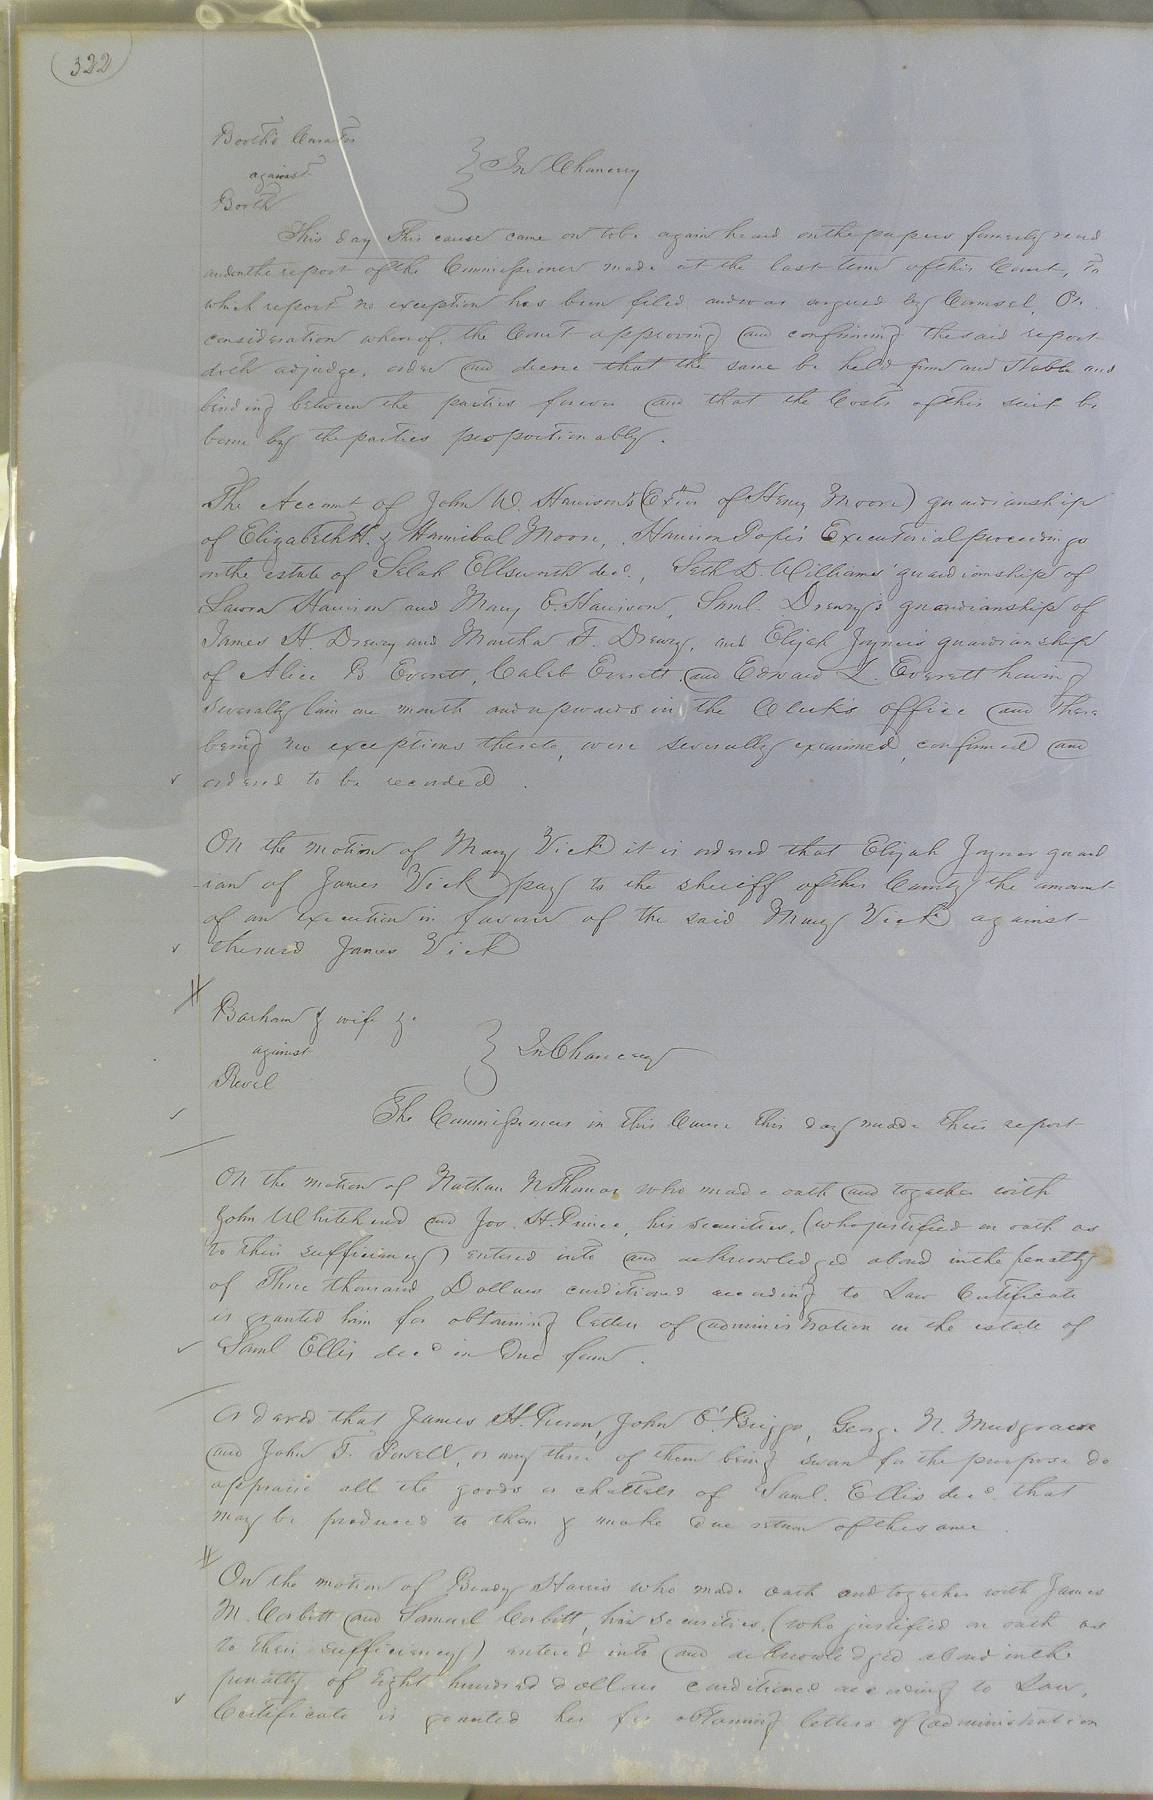 322
Booth's Curator
against } In Chancery
Booth
This day This cause came on to be again heard on the papers formerly read
and on the report of the Commissioner made at the last term of this Court, To
which report no exception has been filed and was argued by Counsel, On
consideration whereof, the Court approving and confirming the said report
doth adjudge, order and decree that the same be held firm and stable and
binding between the parties forever and that the Costs of this suit be
borne by the parties proportionably.
The Account of John W. Harrison's (Exor of Henry Moore) guardianship
of Elizabeth H. & Hannibal Moore, Harrison Pope's Executorial proceedings
on the estate of Selah Ellsworth decd., Seth D. Williams' guardianship of
Laura Harrison and Mary E. Harrison, Saml. Drewry's guardianship of
James H. Drewry and Martha F. Drewry, and Elijah Joyner's guardianship
of Alice B Everett, Caleb Everett and Edward L. Everett having
severally lain one month and upwards in the Clerk's office and there
being no exceptions thereto, were severally examined, confirmed and
ordered to be recorded.
On the motion of Mary Vick it is ordered that Elijah Joyner guard
-ian of James Vick pay to the sheriff of this County the amount
of an execution in favour of the said Mary Vick against
the said James Vick
Barham & wife &.
against } In Chancery
Revel
The Commissioners in this Cause this day made their report
On the motion of Nathan N Thomas who made oath and together with
John Whitehead and Jos. H. Prince, his securities, (who justified on oath as
to their sufficiency) entered into and acknowledged a bond in the penalty
of Three thousand Dollars conditioned according to Law Certificate
is granted him for obtaining letters of administration on the estate of
Saml Ellis decd in due form.
Ordered that James H. John O. Briggs, George N. Musgrave
and John T. Powell, or any three of them being sworn for the purpose do
appraise all the goods or chattels of Saml. Ellis decd. that
may be produced to them & make due return of the same
On the motion of Harris who made oath and together with James
M. Corbitt and Samuel Corbitt, his securities, (who justified on oath as
to their sufficiency) entered into and acknowledged a bond in the
penalty of Eight hundred dollars conditioned according to Law,
Certificate is granted her for obtaining letters of administration